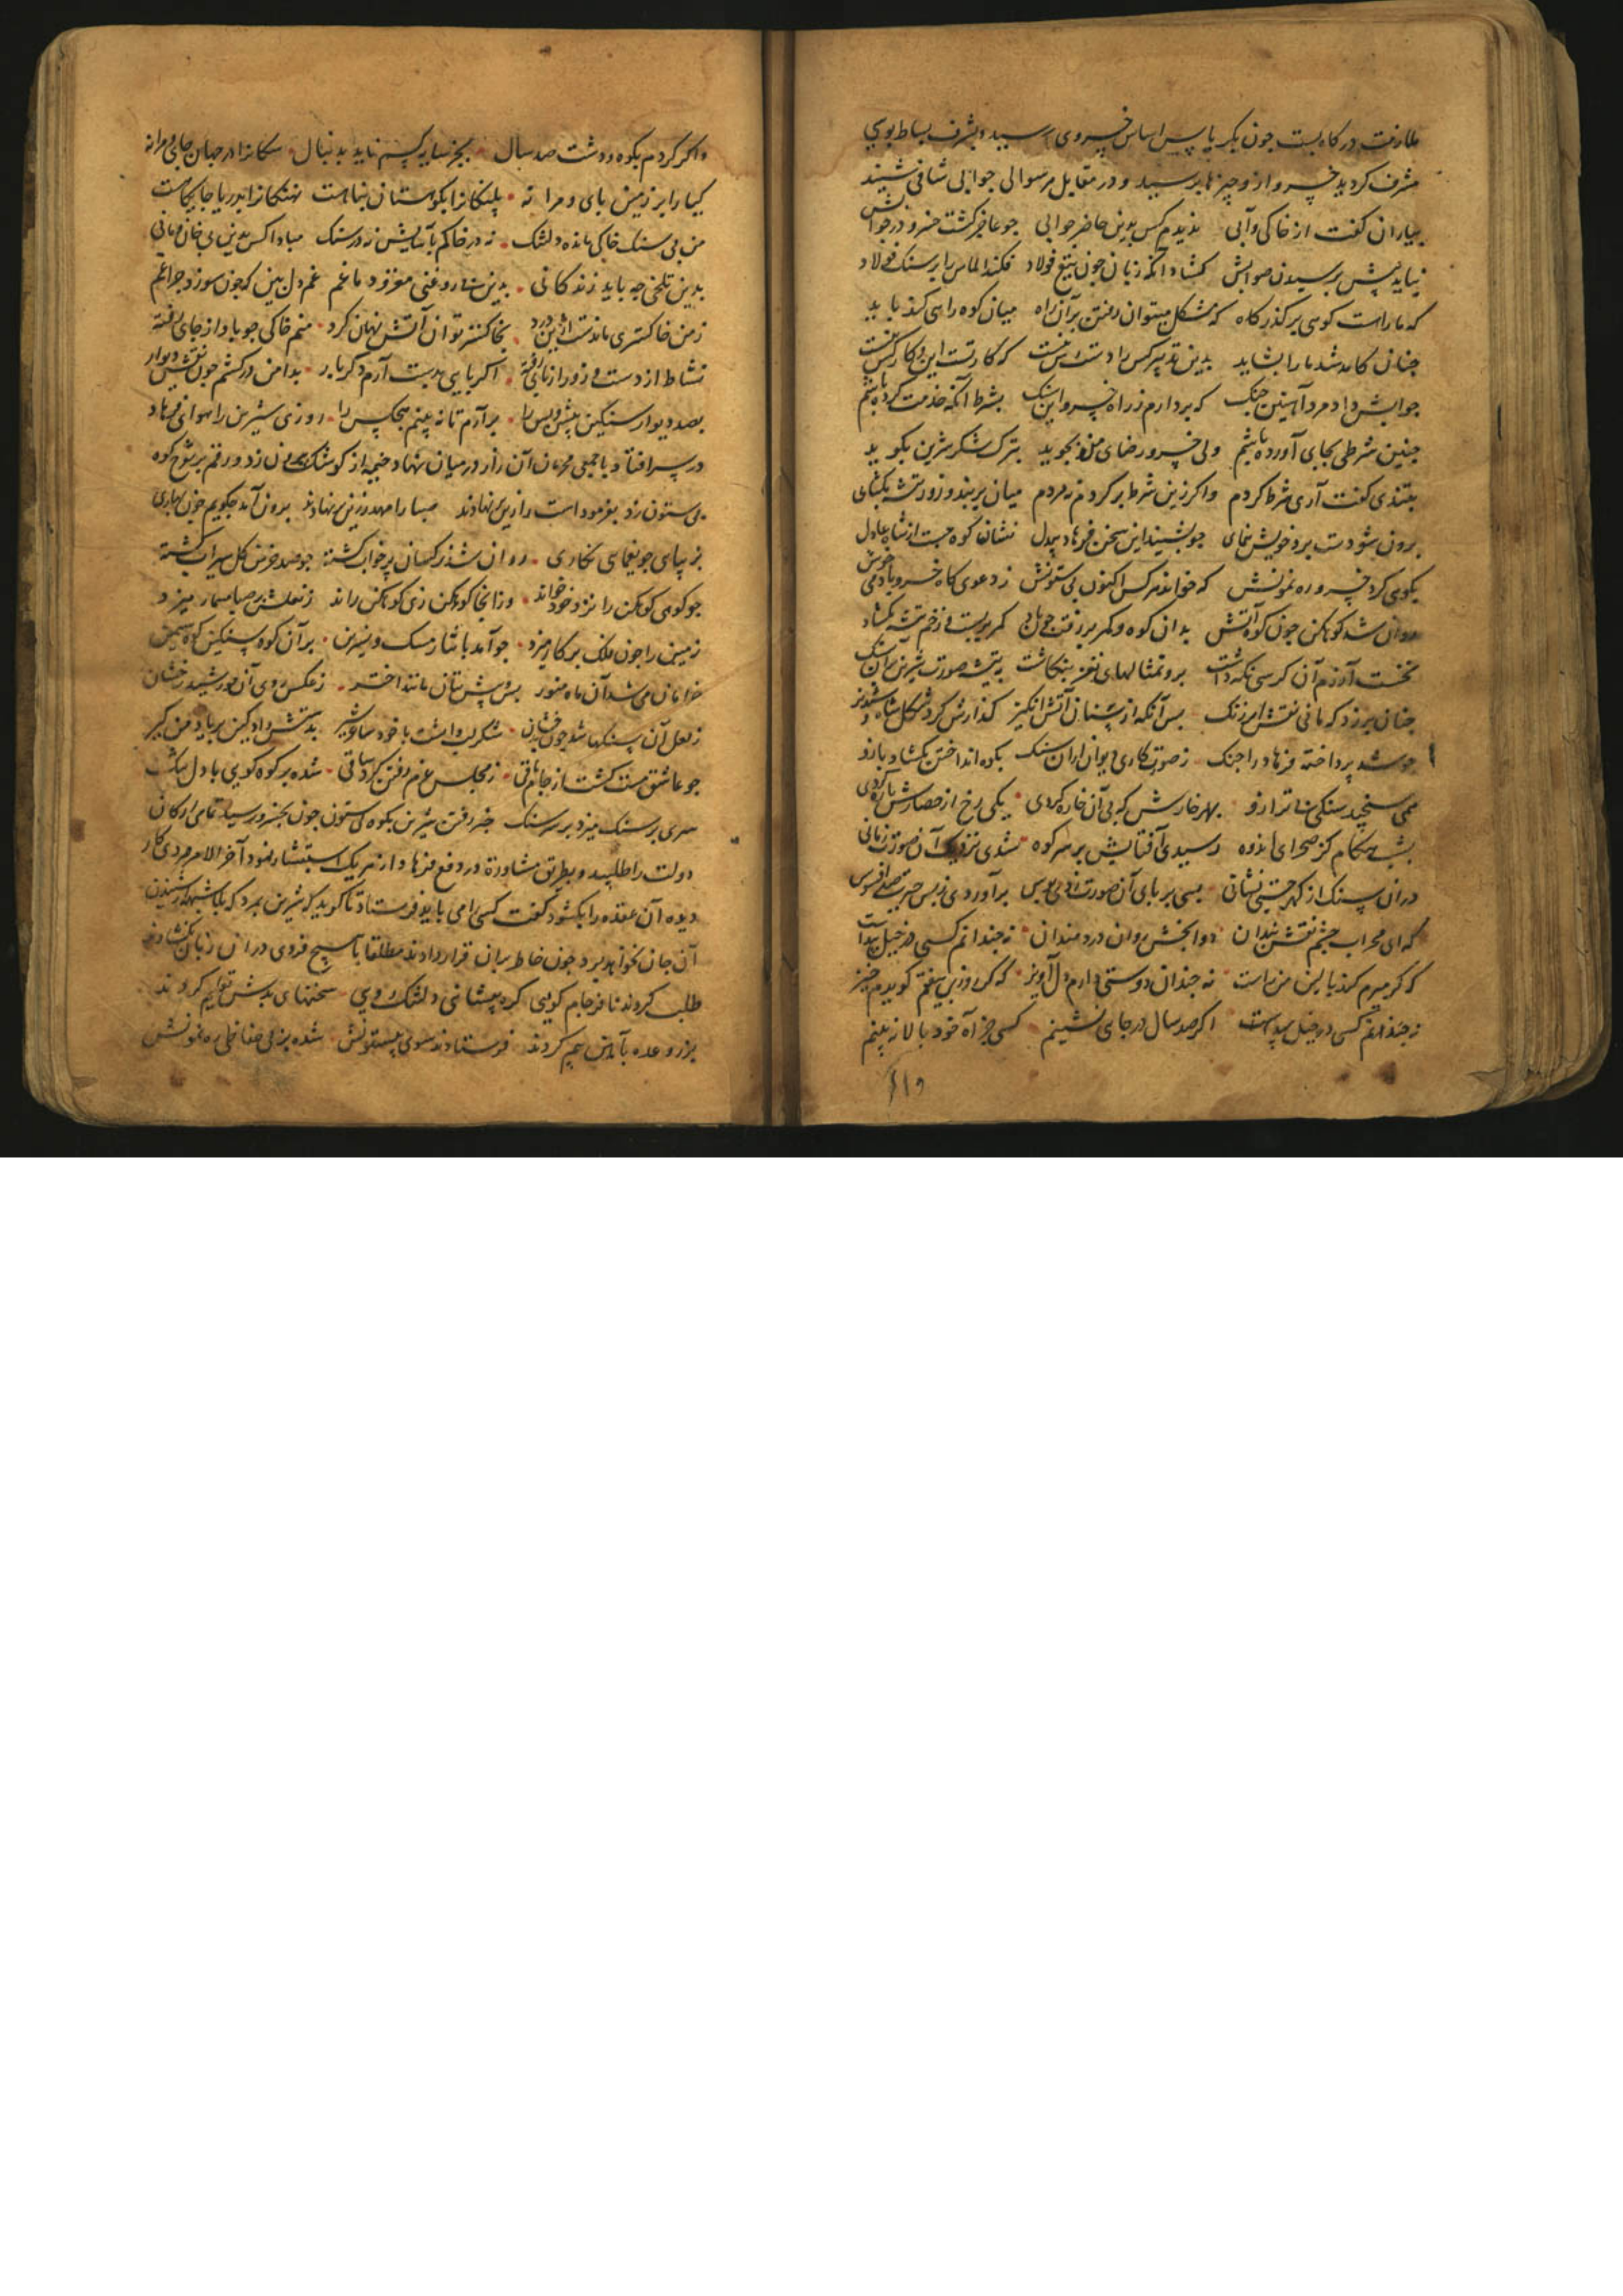 ملازمت درکاه بست جون بکریاس اساس خسروی رسید و بشرف بساط بوسی
مشرف کردید خسرو ازو چیزها پرسید و در مقابل هر سوالی جوابی شافی شنید
بیاران کفت از خاکی و آبی ندیدم کس بدین حاضر جوابی جو عاجز کشت خسرو در جوابش
نیامد پیش پرسیدن صوابش کشاد آنکه زبان جون تیغ فولاد فکند الماس را بر سنک فولاد
که ما راست کوهی بر کذرکاه که مشکل میتوان رفتن بر آن راه میان کوه راهی کند باید
چنان کامد شد ما را بشاید بدین تدبیر کس را دست رس نیست که کار تست این و کار کس نیست
جوابش داد مرد آهنین جنک که بردارم ز راه خسرو این سنک بشرط آنکه خدمت کرده باشم
چنین شرطی بجای آورده باشم دل خسرو رضای من بجوید بترک شکر شیرین بکوید
بتندی کفت آری شرط کردم واکر زین شرط برکردم نه مردم میان بربند و زور تیشه بکشای
برون شو دست برد خویش نمای جو بشنید این سخن فرهاد بیدل نشان کوه جست از شاه عادل
بکوهی کرد خسرو ره نمونش که خواند هر کس اکنون بی ستونش ز دعوی کاه خسرو با دمی خوش
روان شد کوهکن جون کوه آتش بدان کوه و کمر بر رفت جون باد کمر بربست و زخم تیشه بکشاد
نخست آزرم آن کرسی نکه داشت برو تمثالهای نغز بنکاشت به تیشه صورت شیرین بر آن سنک
چنان بر زد که مانی نقش ارژنک پس آنکه از سنان آتش انکیز کذارش کرد شکل شاه و شبدیز
جو شد پرداخته فرهاد را جنک ز صورت کاری دیوار آن سنک بکوه انداختن بکشاد بازو
همی سنجید سنکی بی ترازو بهر خارش که بی آن خاره کردی یکی برخ از حصارش پاره کردی
بشب هنکام کز صحرای اندوه رسیدی آفتابش بر سر کوه شدی نزدیک آن صورت زمانی
در آن سنک از کهر جستی نشانی بسی بر پای آن صورت زدی بوس برآوردی ز بس حیرت صد افسوس
که ای محراب چشم نقش بندان دوا بخش روان دردمندان نه چندانم کسی در خیل پیداست
که کر میرم کند بالین من راست نه چندان دوستی دارم دل آویز که کر روزی بیفتم کویدم خیز
نه چندانم کسی در خیل پیداست اکر صد سال در جایی نشینم کسی جز آه خود بالا نه بینم
واکر کردم بکوه و دشت صد سال بجز سایه کسم ناید بدنبال سکانرا در جهان جای و مرا نه
کیا را بر زمین پای و مرا نه پلنکانرا بکوهستان پناهست نهنکانرا بدریا جایکاهست
من بی سنک خاکی مانده دلتنک نه در خاکم آسایش نه در سنک مبادا کس بدین بی خان و مانی
بدین تلخی چه باید زندکانی غم دل بین که جون سوزد چراغم
ز من خاکستری ماندست ازین درد بخاکستر توان آتش نهان کرد منم خاکی جو باد از جای رفته
نشاط از دست و زور از پای رفته اکر پایی بدست آرم دکر بار بدامن درکشم جون نقش دیوار
بصد دیوار سنکین پیش و پس را برآرم تا نه بینم هیچکس را روزی شیرین را هوای فرهاد
در سر افتاد با جمعی محرمان آن راز در میان نهاد و خیمه از کوشک بیرون زد و رقم بر شوخ کوه
بی ستون زد بفرمود اسب را زین بر نهادند صبا را مهد زرین بر نهادند برون آمد چکویم جون بهاری
بزیبای جو یغمای نکاری روان شد نرکسان پر خواب کشته جو صد خرمن کل سیراب کشته
جو کوهی کوهکن را نزد خود خواند وز آنجا کوهکن زی کوهکن راند ز نعلش بر صبا مسمار میزد
زمین را جون فلک پرکار میزد جو آمد با نثار مشک و نسرین بر آن کوه سنکین کوه سیمین
خرامان می شد آن ماه منور بتان مانند اختر ز عکس روی آن خورشید رخشان
ز لعل آن سنکها شد جون بدخشان شکر لب داشت با خود ساغر شیر بدستش داد کین بر یاد من کیر
جو عاشق مست کشت از جام باقی ز مجلس عزم رفتن کرد ساقی شده بر کوه کوهی با دل تنک
سری بر سنک میزد بر سر سنک خبر رفتن شیرین بکوه بی ستون جون بخسرو رسید تمامی ارکان
دولت را طلبید و بطریق مشاورة در دفع فرهاد از هر یک استشاره نمود آخر الامر مردی کار
دیده آن عقده را بکشود کفت کسی را می باید فرستاد تا کوید که شیرین بمرد که بمجرد شنیدن
آن جان نخواهد برد جون خاطر بر آن قرار دادند مطلقا با هیچ فردی در آن زبان نکشادند
طلب کردند نافرجام کویی کره پیشانی دلتنک رویی سخنهای بدش تعلیم کردند
بزر وعده بآهن بیم کردند فرستادند سوی بیستونش شده بر بی حفاظی ره نمونش